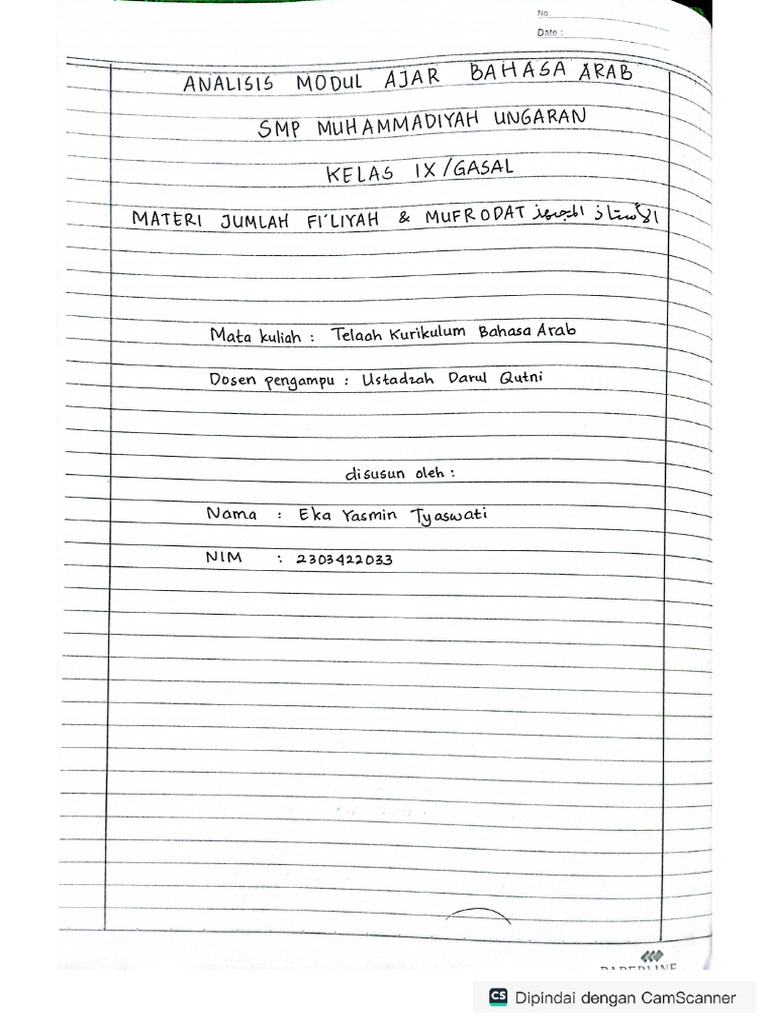 No.
Date :
ANALISIS MODUL AJAR BAHASA ARAB
SMP MUHAMMADIYAH UNGARAN
KELAS IX/GASAL
MATERI JUMLAH FI'LIYAH & MUFRODAT الأستاذ
Mata kuliah : Telaah Kurikulum Bahasa Arab
Dosen pengampu : Ustadzah Darul Qutni
disusun oleh :
Nama : Eka Yasmin Tyaswati
NIM : 2303422033
CS Dipindai dengan CamScanner